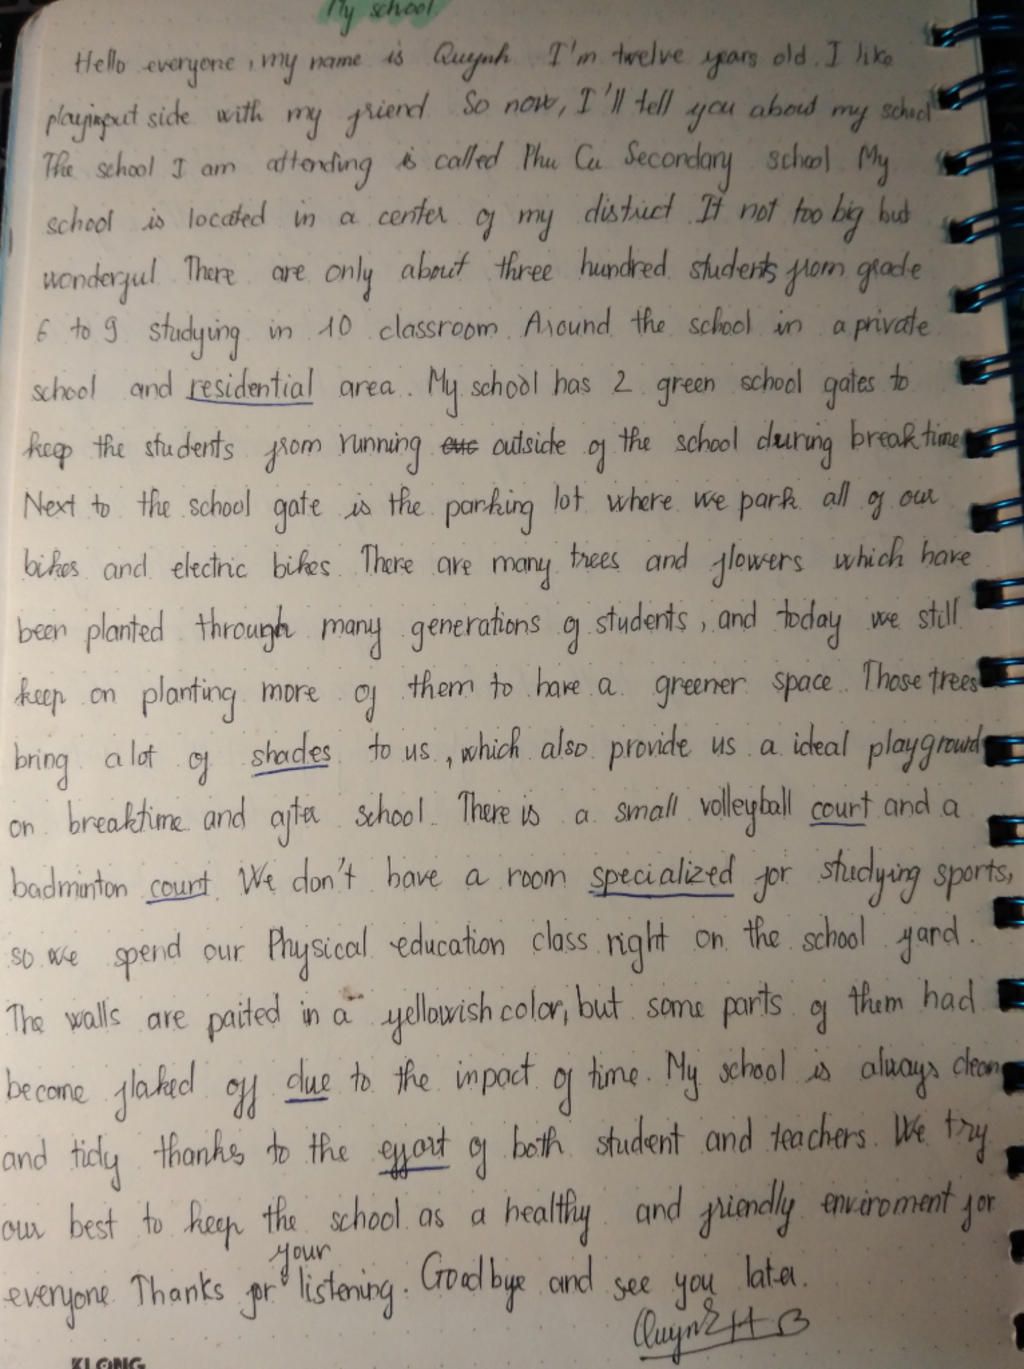 My school
Hello everyone, my name is Quynh I'm twelve years old. I like
playingout side with my friend. So now, I'll tell you about my school
The school I am attending is called Phu Cu Secondary school My
school is located in a center of my district It not too big but
wonderful There are only about three hundred students from grade
6 to 9 studying in 10 classroom. Around the school in a private
school and residential area. My school has 2 green school gates to
keep the students from running outside of the school during breaktime
Next to the school gate is the parking lot where we park all of our
bikes and electric bikes. There are many trees and flowers which have
been planted through many generations of students, and today we still
keep on planting more of them to have a greener space. Those trees
bring a lot of shades to us, which also provide us a ideal playground
on breaktime and after school. There is a small volleyball court and a
badminton court. We don't have a room specialized for studying sports,
so we spend our Physical education class right on the school yard.
The walls are paited in a yellowish color, but some parts of them had
become flaked off due to the inpact of time. My school is always clean
and tidy thanks to the effort of both student and teachers. We try
our best to keep the school as a healthy and friendly enviroment for
everyone. Thanks for your listening. Goodbye and see you later.
KLONG